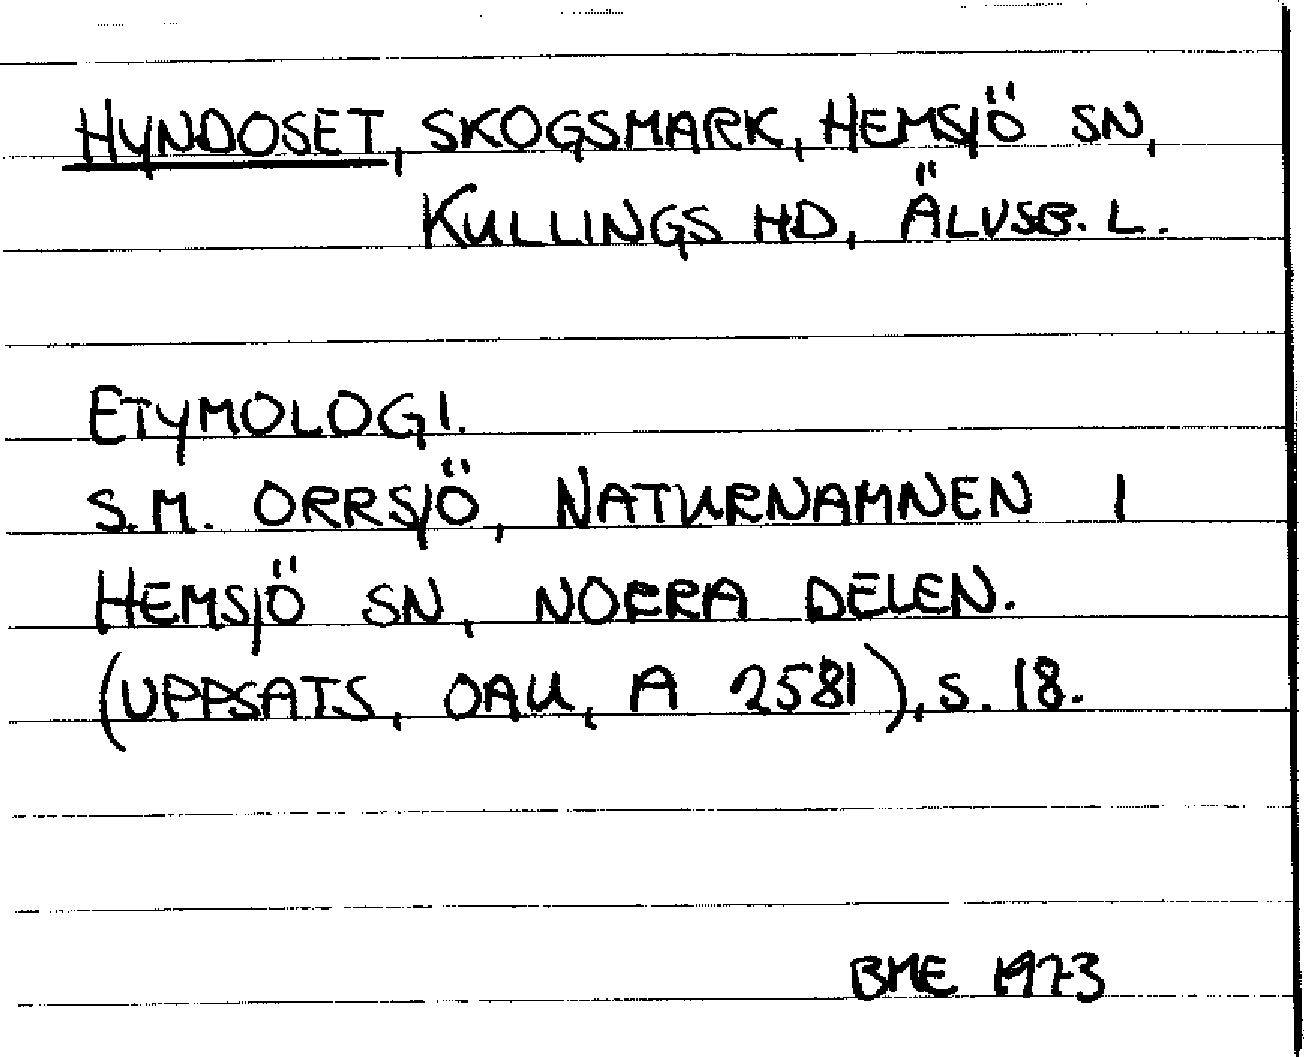 HYNDOSET, SKOGSMARK, HEMSJÖ SN,
KULLINGS HD, ÄLVSB. L.
ETYMOLOGI.
S.M. ORRSJÖ, NATURNAMNEN I
HEMSJÖ SN, NORRA DELEN.
(UPPSATS, OAU, A 2581), S. 18.
BME 1973